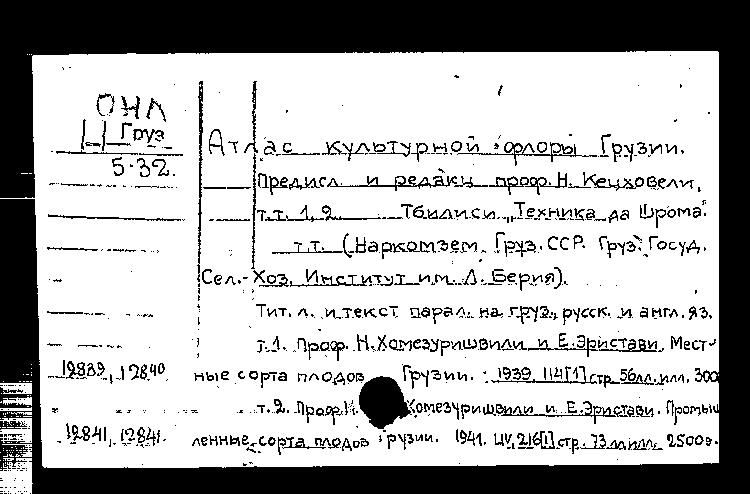 ОНЛ
Груз
5-32.
Атлас культурной флоры Грузии.
Предисл. и редакц. проф. Н. Кецховели,
т.т. 1, 2. Тбилиси „Техника да Шрома".
т.т. (Наркомзем. Груз. ССР. Груз. Госуд.
Сел.-Хоз. Институт им. Л. Берия).
Тит. л. и текст парал. на груз., русск. и англ. яз.
т.1. Проф. Н. Хомезуришвили и Е. Эристави. Мест-
12839, 12840 ные сорта плодов Грузии. 1939. 114[1] стр. 56 лл. илл. 300
т.2. Проф. Н. Хомезуришвили и Е. Эристави. Промыш
12841, 12841. ленные сорта плодов Грузии. 1941. 216[1] стр. 73 лл. илл. 2500э.